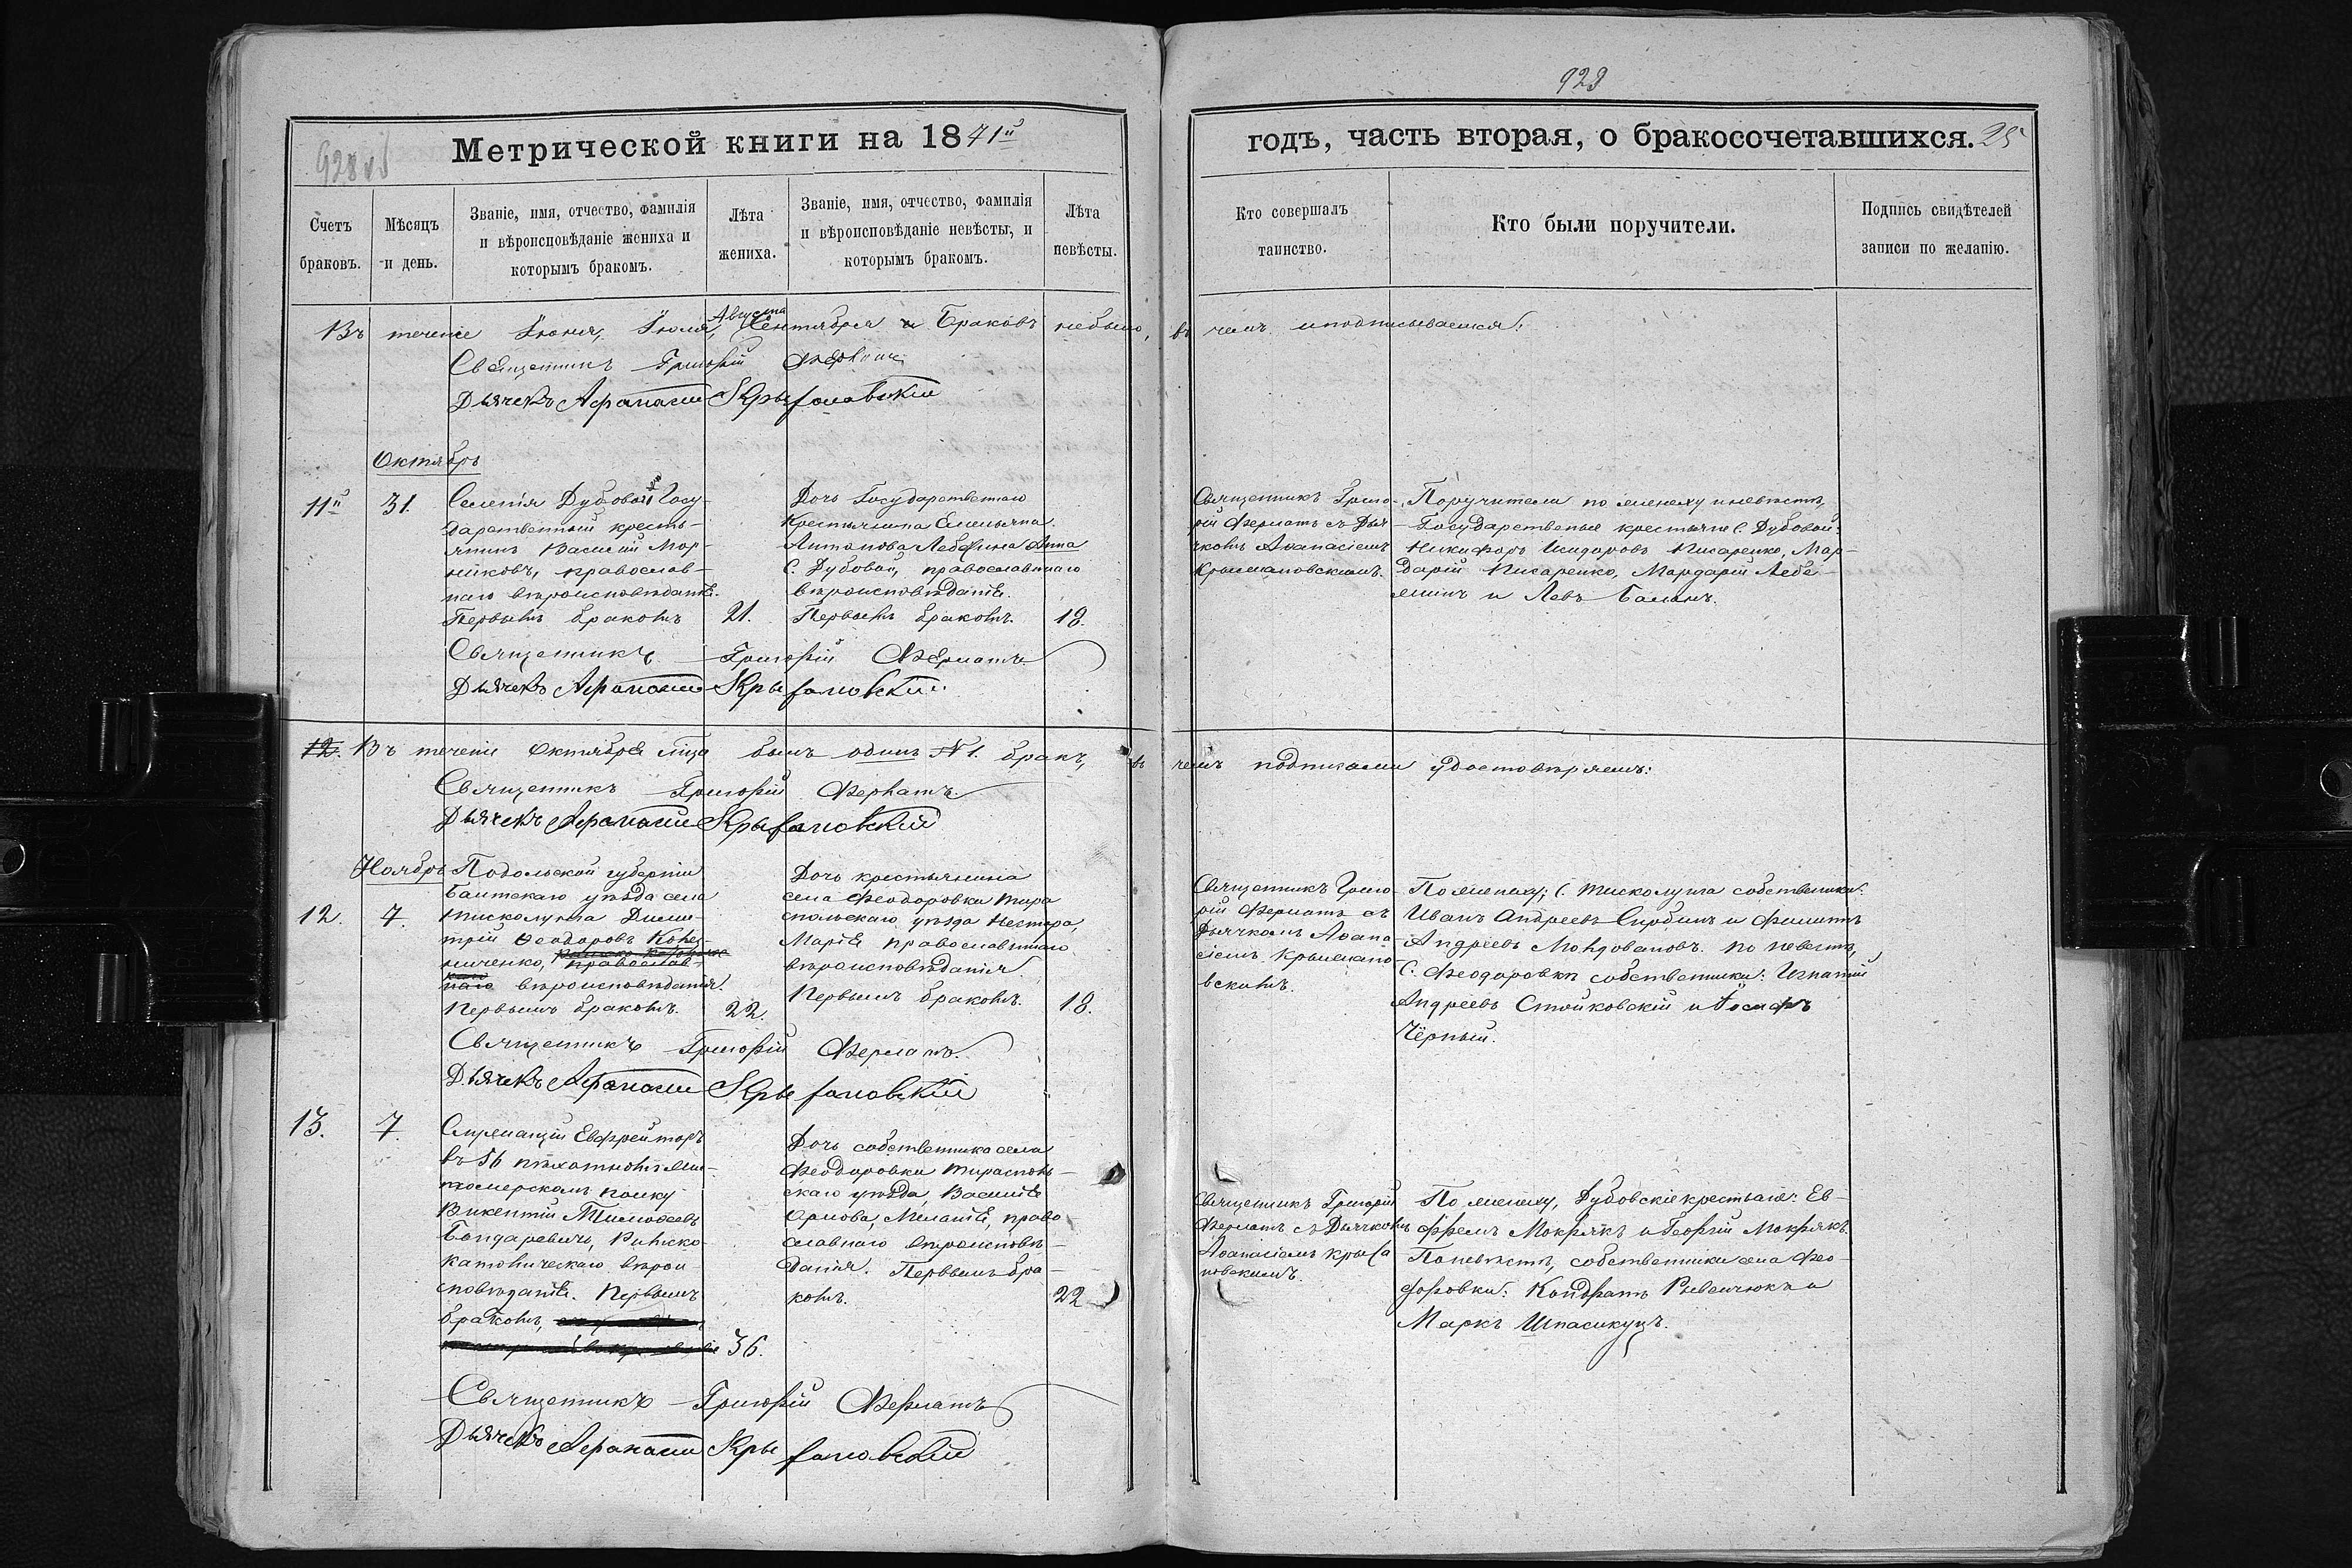 923
928
Метрической книги на 1871й
годъ, часть вторая, о бракосочетавшихся. 25
Счетъ
браковъ.
Мѣсяцъ
и день.
Званіе, имя, отчество, фамилія
и вѣроисповѣданіе жениха и
которымъ бракомъ.
Лѣта
жениха.
Званіе, имя, отчество, фамилія
и вѣроисповѣданіе невѣсты, и
которымъ бракомъ.
Лѣта
невѣсты.
Кто совершалъ
таинство.
Кто были поручители.
Подпись свидѣтелей
записи по желанію.
Августа
Въ теченіе Іюня, Іюля, Сентября и Браковъ небыло, въ чемъ и подписываемся:
Священникъ Григорій
Дьячекъ Афанасій
Октябрь
11й
31.
Селенія Дубовой Госу-
дарственный кресть-
янинъ Василій Мар-
никовъ, православ-
наго вѣроисповѣданія.
Первымъ бракомъ
21.
Дочь Государственаго
Крестьянина Емельяна
Антонова Лебедина Анна
С. Дубовой, православнаго
вѣроисповѣданія.
Первымъ бракомъ.
18.
Священникъ Григо-
рій Ферматъ съ Дья
чкомъ Аѳанасіемъ
Крыжановскимъ.
Поручители по жениху и невѣстѣ,
Государственые крестьяне С. Дубовой:
Никифоръ Исидоровъ Писаренко, Мар-
дарій Писаренко, Мардарій Лебе-
динъ и Левъ Баланъ.
Священникъ Григорій Ферматъ
Дьячекъ Афанасій Крыжановскій
12. Въ теченіе Октября м҃ца былъ одинъ №1. бракъ, въ чемъ подписами удостовѣряемъ:
Священникъ Григорій Ферматъ
Дьячекъ Афанасій Крыжановскій
Ноябрь
12.
7.
Подольской губерніи
Балтскаго уѣзда села
Писколунга Дими-
трій Ѳеодоровъ
ниченко, православ-
наго вѣроисповѣданія.
Первымъ бракомъ.
22.
Дочь крестьянина
села Феодоровки Тира
спольскаго уѣзда Нестора,
Марія православнаго
вѣроисповѣданія
Первымъ бракомъ.
18.
Священникъ Григо
рій Ферматъ съ
Дьячкомъ Аѳана
сіемъ Крыжано
вскимъ.
По жениху; С. Писколунга собственики:
Иванъ Андреевъ Сырбинъ и Филиппъ
Андреевъ Молдовановъ. По невѣстѣ,
С. Феодоровки собственики: Игнатій
Андреевъ Стойковскій и Іосифъ
Чёрный.
Священникъ Григорій Ферматъ.
Дьячекъ Афанасій Крыжановскій
13.
7.
Евфрейторъ
въ 56 пѣхотномъ Жи-
томерскомъ полку
Викентій Тимоѳеевъ
Бондаревичъ, Римско
католическаго вѣрои-
сповѣданія. Первымъ
бракомъ,
36.
Дочь собственника села
Феодоровки Тирасполь-
скаго уѣзда, Василія
Орлова, Меланія, право
славнаго вѣроисповѣ-
данія. Первымъ бра-
комъ.
22
Священникъ Григорій
Ферматъ съ Дьячкомъ
Аѳанасіемъ Крыжа
новскимъ.
По жениху, Дубовскіе крестьяне: Ев-
фремъ Мокрякъ и Георгій Мокрякъ.
По невѣстѣ, собственники села Фео-
доровки: Кондратъ и
Маркъ Шпасикуцъ.
Священникъ Григорій Ферматъ
Дьячекъ Афанасій Крыжановскій